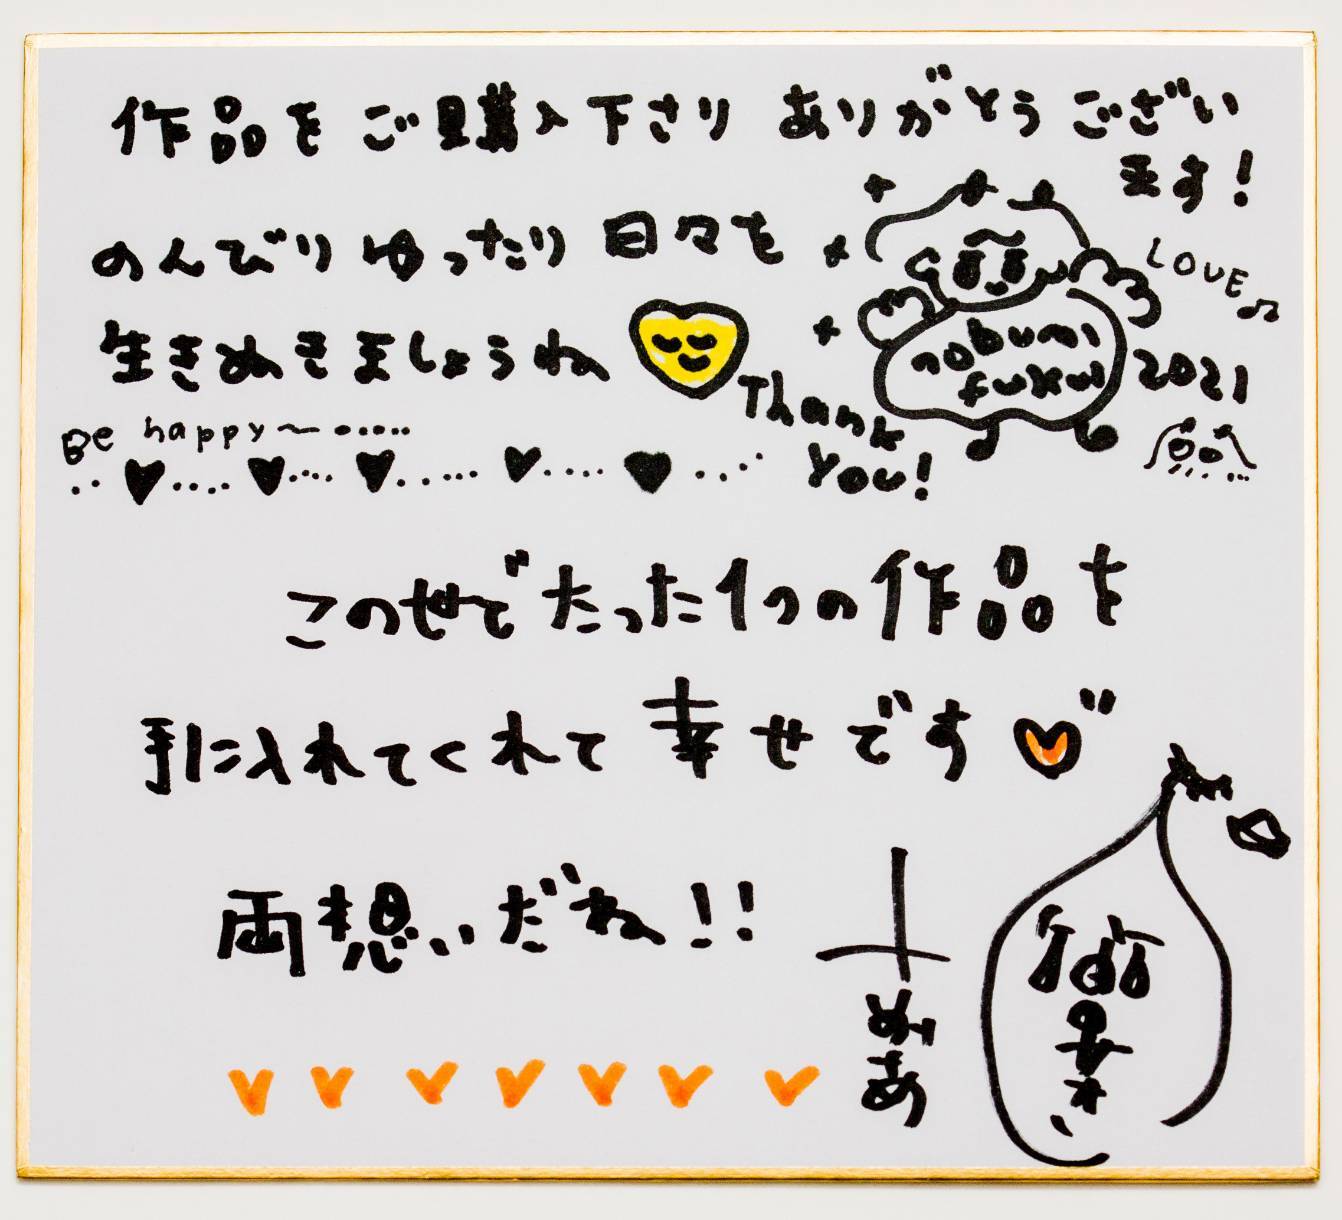 作品を ご購入下さり ありがとう ござい
ます!
のんびり ゆったり 日々を
LOVE♫
生きぬきましょうね
nobumi
fukui
2021
Thank
You!
Be happy〜
このせでたった1つの作品を
手に入れてくれて 幸せです
両想いだね!!